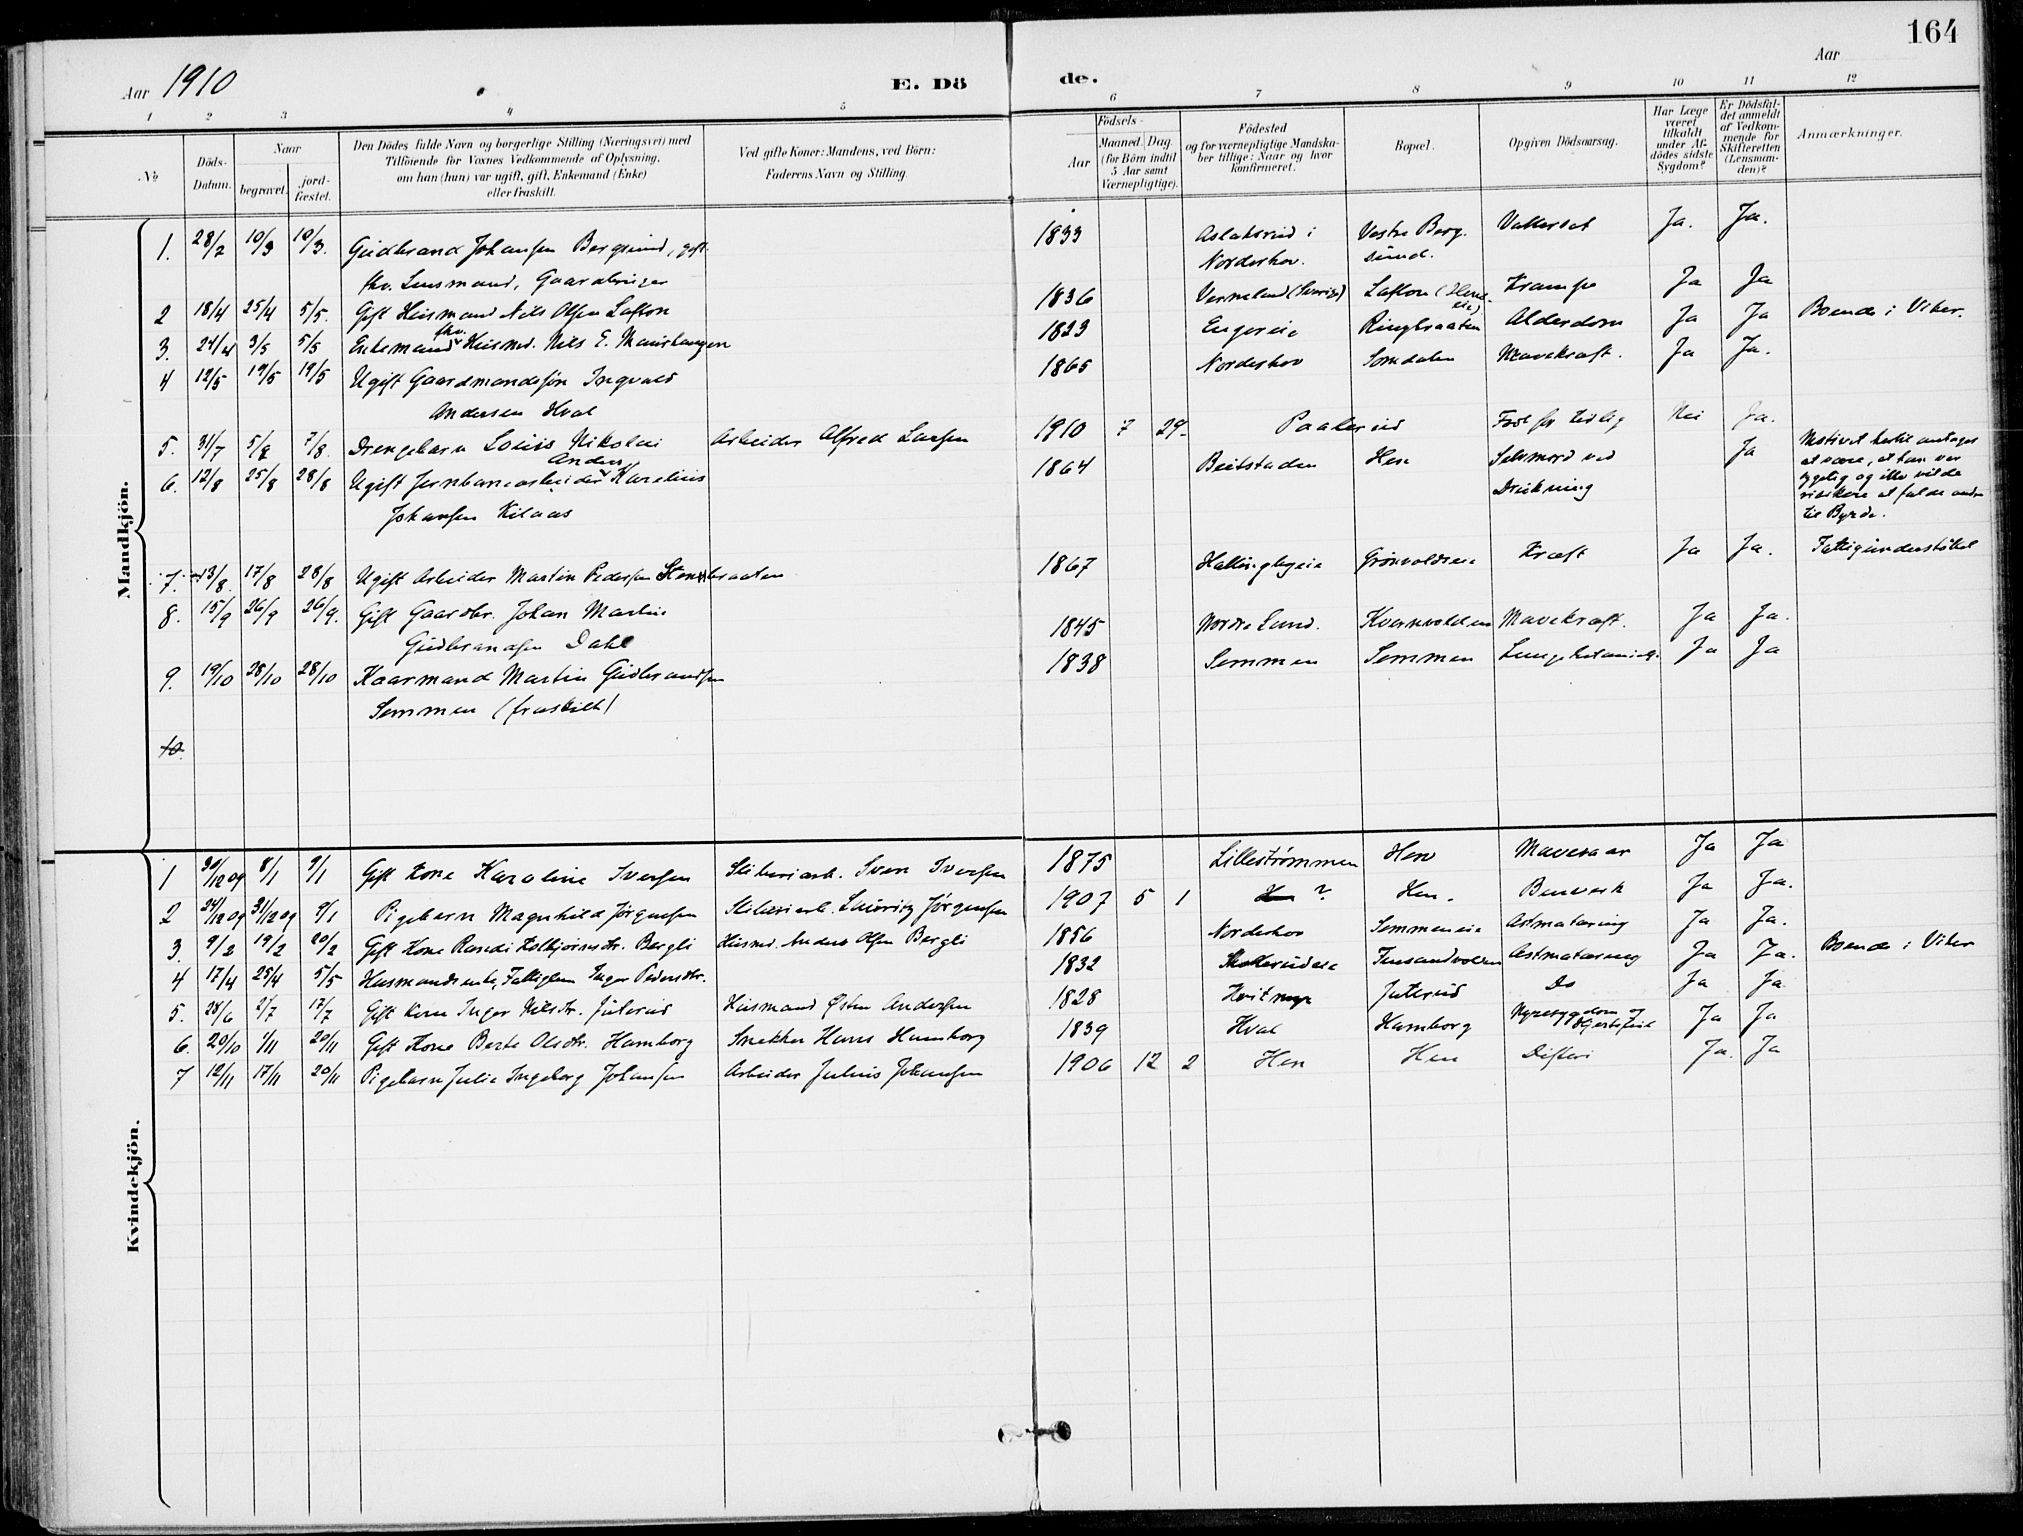 164
Aar 1910
E. Dö
de.
Aar
1 2 3 4 5 6 7 8 9 10 11 12
No
Döds-
Datum.
Naar
begravet.
jord-
fæstet.
Den Dödes fulde Navn og borgerlige Stilling (Næringsvei) med
Tilföiende for Voxnes Vedkommende af Oplysning,
om han (hun) var ugift, gift, Enkemand (Enke)
eller fraskilt.
Ved gifte Koner: Mandens, ved Börn:
Faderens Navn og Stilling.
Födsels-
Aar
Maaned. Dag.
(for Börn indtil
5 Aar samt
Værnepligtige).
Födested
og for værnepligtige Mandska-
ber tillige: Naar og hvor
konfirmeret.
Bopæl.
Opgiven Dödsaarsag.
Har Læge
været
tilkaldt
under Af-
dödes sidste
Sygdom?
Er Dödsfal-
det anmeldt
af Vedkom-
mende for
Skifteretten
(Lensman-
den)?
Anmærkninger.
Mandkjön.
1. 28/2 10/3 10/3. Gudbrand Johansen Bergsund, gift 1833 Aslaksrud i Vestre Berg- Vattersot Ja. Ja.
fhv. Lensmand, Gaardbruger Norderhov. sund.
2 18/4 25/4 5/5. Gift Husmand Nils Olsen Lafton 1836 Vermeland (Sverige) Lafton (Hens- Krampe Ja Ja
eie)
3. 24/4 3/5 5/5 Enkemand fhv. Husmd. Nils E. 1823 Engereie Ringbraaten Alderdom Ja Ja Boende i Viker.
4 12/5 19/5 19/5 Ugift Gaardmandssøn Ingvald 1865 Norderhov Somdalen Mavekræft. Ja Ja.
Andersen Hval
5. 31/7 5/8 7/8. Drengebarn Louis Nikolai Arbeider Alfred Larsen 1910 7 29. Paalerud Født for tidlig Nei Ja.
6. 12/8 25/8 28/8 Ugift Jernbanearbeider Anders Karelius 1864 Beitstaden Hen Selvmord ved Ja Motivet hertil antages
Johansen Kilaas Drukning at være, at han var
sygelig og ikke vilde
risikere at falde andre
til Byrde.
7. 13/8. 17/8 28/8 Ugift Arbeider Martin Pedersen Stenbraaten 1867 Hallingbyeie Grønvoldseie Kræft Ja Ja. Fattigunderstøttet
8. 15/9 26/9 26/9. Gift Gaardbr. Johan Martin 1845 Nordre Lund. Kvernvolden Mavekræft. Ja Ja.
Gudbrandsen Dahl
9. 19/10 28/10 28/10 Kaarmand Martin Gudbrandsen 1838 Semmen Semmen Ja Ja
Semmen (fraskilt)
10.
Kvindekjön.
1 30/12 09 8/1 9/1 Gift Kone Karoline Iversen Sliberiarb. Sven Iversen 1875 Lillestrømmen Hen Mavesaar Ja Ja
2 24/12 09 31/12 09 9/1 Pigebarn Magnhild Jørgensen Sliberiarb. Lauritz Jørgensen 1907 5 1 Hen ? Hen. Benverk Ja Ja.
3. 9/2 19/2 20/2 Gift Kone Randi Kolbjørnsdtr. Bergli Husmd. Anders Olsen Bergli 1856 Norderhov Semmeneie Astmatæring Ja Ja.
4 17/4 25/4 5/5 Husmandsenke, Fattiglem Inger Pedersdtr. 1832 Skollerudeie Astmatæring Ja Ja. Boende i Viker
5. 28/6 2/7 17/7 Gift Kone Inger Nilsdtr. Juterud Husmand Østen Andersen 1828 Hvitmyr Juterud Do Ja Ja
6. 20/10 1/11 20/11 Gift Kone Berte Olsdtr. Hamborg Snekker Hans Hamborg 1839 Hval Hamborg Nyresygdom og Hjertefeil Ja Ja
7 12/11 17/11 20/11 Pigebarn Julie Ingeborg Johansen Arbeider Julius Johansen 1906 12 2 Hen Hen Difteri Ja. Ja